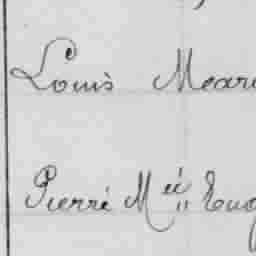 Louis Mear
Pierre M.ie Eug